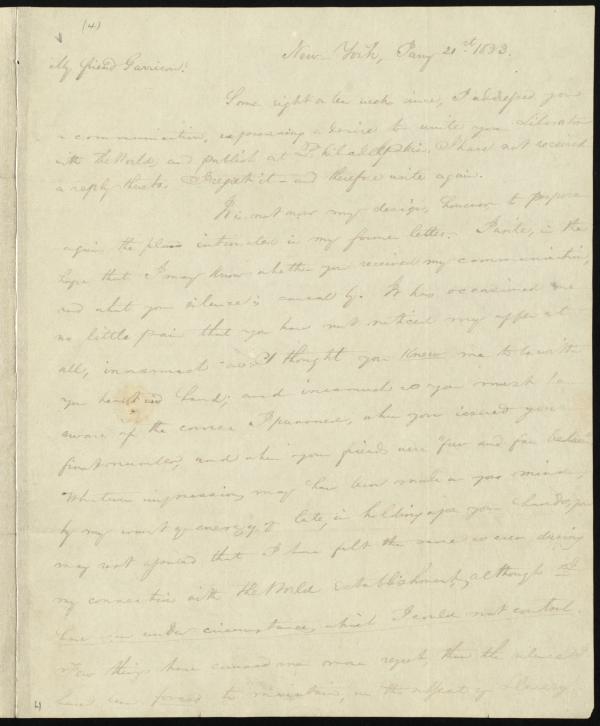 (4)
New-York, Jany 21st 1833.
My friend Garrison:
Some eight or ten weeks since, I addressed you
a communication, expressing a desire to unite your Liberator
with the World, and publish at Philadelphia. I have not received
a reply thereto. I regret it - and therefore write again.
It is not now my design, however to propose
again the plan intimated in my former letter. I write, in the
hope that I may know whether you received my communication,
and what your silence is caused by. It has occasioned me
no little pain that you have not noticed my offer at
all, inasmuch as I thought you knew me to be with
you heart and hand; and inasmuch as you must be
aware of the course I pursued, when you issued your
first number, and when your friends were "few and far between."
Whatever impressions may have been made on your mind,
by my want of energy, of late, in holding up your hands, you
may rest assured that I have felt the same as ever during
my connection with the World establishment, although
have been under circumstances which I could not control.
Few things have caused me more regret, than the silence I
have been forced to maintain, on the subject of slavery